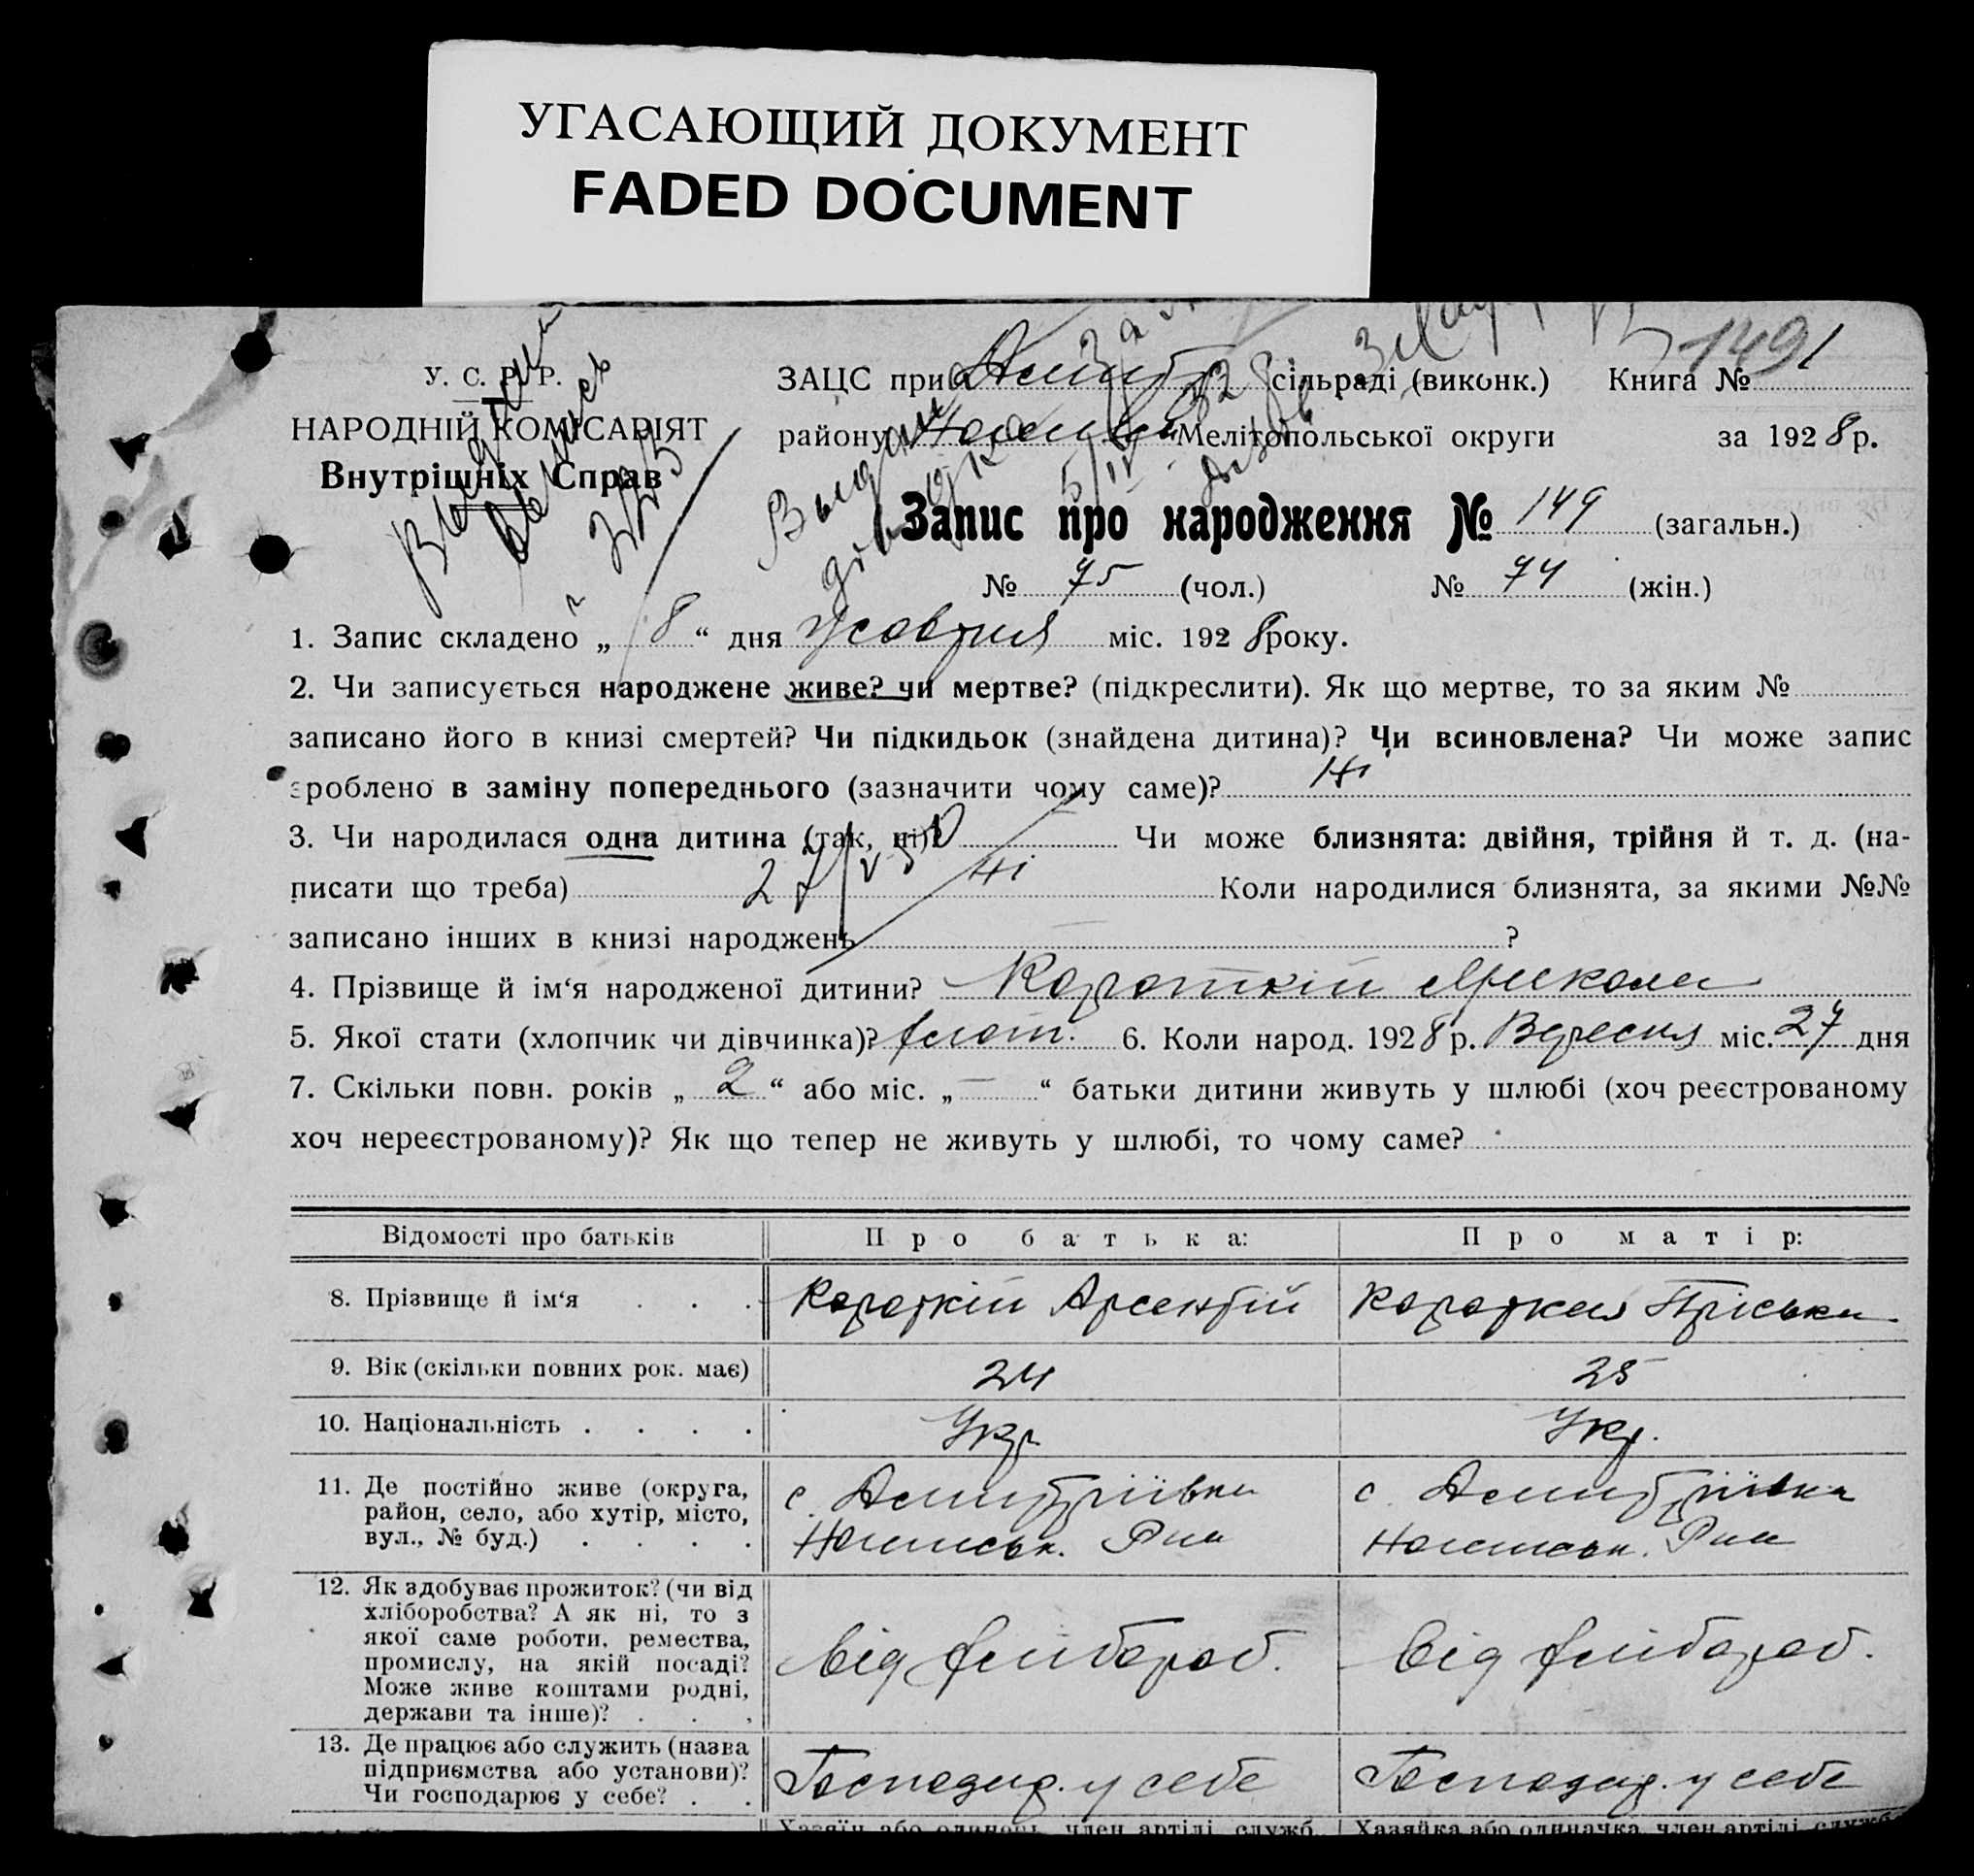 УГАСАЮЩИЙ ДОКУМЕНТ
FADED DOCUMENT
1491
У. С. Р. Р.
НАРОДНІЙ КОМІСАРІЯТ
Внутрішніх Справ
ЗАЦС при сільраді (виконк.) Книга №
району Мелітопольської округи за 1928 р.
Запис про народження № 149 (загальн.)
№ 75 (чол.) № 74 (жін.)
1. Запис складено „ 8 “ дня Жовтня міс. 1928 року.
2. Чи записується народжене живе? чи мертве? (підкреслити). Як що мертве, то за яким №
записано його в книзі смертей? Чи підкидьок (знайдена дитина)? Чи всиновлена? Чи може запис
зроблено в заміну попереднього (зазначити чому саме)? Ні
3. Чи народилася одна дитина (так, ні)? Чи може близнята: двійня, трійня й т. д. (на-
писати що треба) Ні Коли народилися близнята, за якими №№
записано інших в книзі народжень ?
4. Прізвище й ім‘я народженої дитини? Короткій Микола
5. Якої стати (хлопчик чи дівчинка)? хлоп. 6. Коли народ. 1928 р. Вересня міс. 27 дня
7. Скільки повн. років „ 2 “ або міс. „ — “ батьки дитини живуть у шлюбі (хоч реєстрованому
хоч нереєстрованому)? Як що тепер не живуть у шлюбі, то чому саме?
Відомості про батьків Про батька: Про матір:
8. Прізвище й ім‘я . . . Короткій Арсентій Короткая Пріська
9. Вік (скільки повних рок. має) 24 25
10. Національність . . . . Укр. Укр.
11. Де постійно живе (округа, с. Дмитріївка с. Дмитріївка
район, село, або хутір, місто,
вул., № буд.) . . . .
12. Як здобуває прожиток? (чи від
хліборобства? А як ні, то з
якої саме роботи, ремества, від хлібороб. від хлібороб.
промислу, на якій посаді?
Може живе коштами родні,
держави та інше)? . . .
13. Де працює або служить (назва
підприємства або установи)? Господар. у себе Господар. у себе
Чи господарює у себе? . .
Хазяїн або одинець, член артілі, служб. Хазяйка або одиначка, член артілі, служб